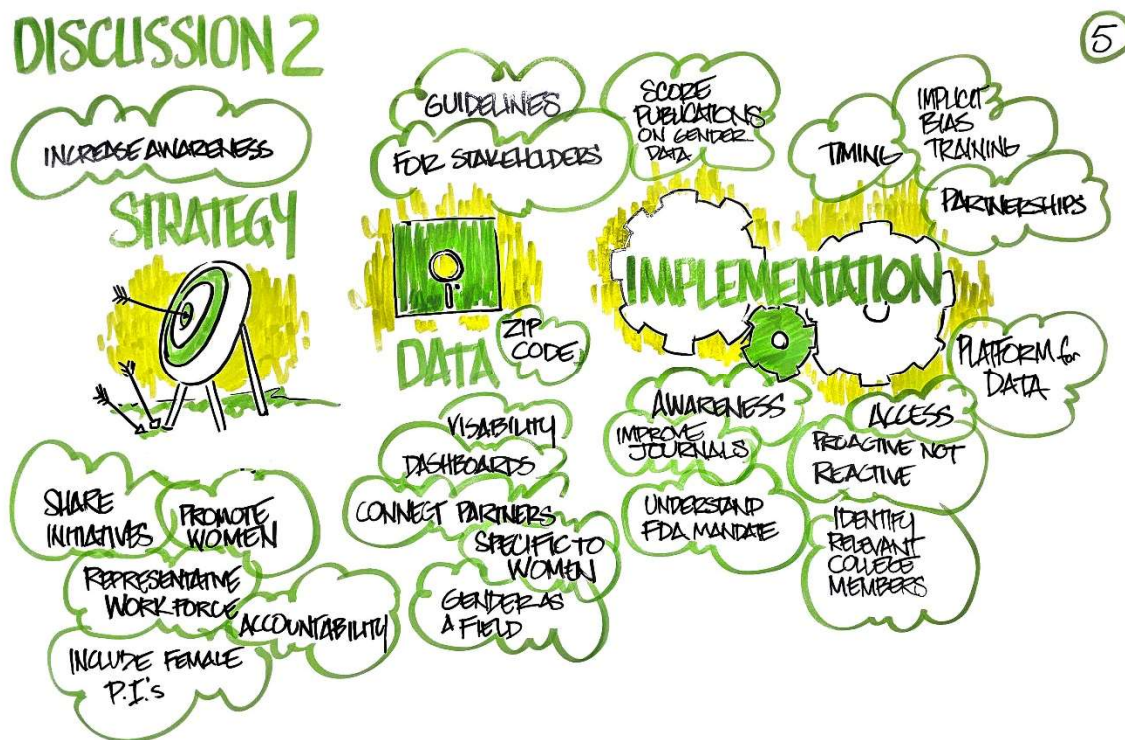 DISCUSSION 2
5
INCREASE AWARENESS
STRATEGY
SHARE
INITIATIVES
PROMOTE
WOMEN
REPRESENTATIVE
WORKFORCE
ACCOUNTABILITY
INCLUDE FEMALE
P.I.'s
GUIDELINES
FOR STAKEHOLDERS
DATA
ZIP
CODE
VISABILITY
DASHBOARDS
CONNECT PARTNERS
SPECIFIC TO
WOMEN
GENDER AS
A FIELD
SCORE
PUBLICATIONS
ON GENDER
DATA
TIMING
IMPLICIT
BIAS
TRAINING
PARTNERSHIPS
IMPLEMENTATION
PLATFORM for
DATA
AWARENESS
IMPROVE
JOURNALS
UNDERSTAND
FDA MANDATE
ACCESS
PROACTIVE NOT
REACTIVE
IDENTIFY
RELEVANT
COLLEGE
MEMBERS